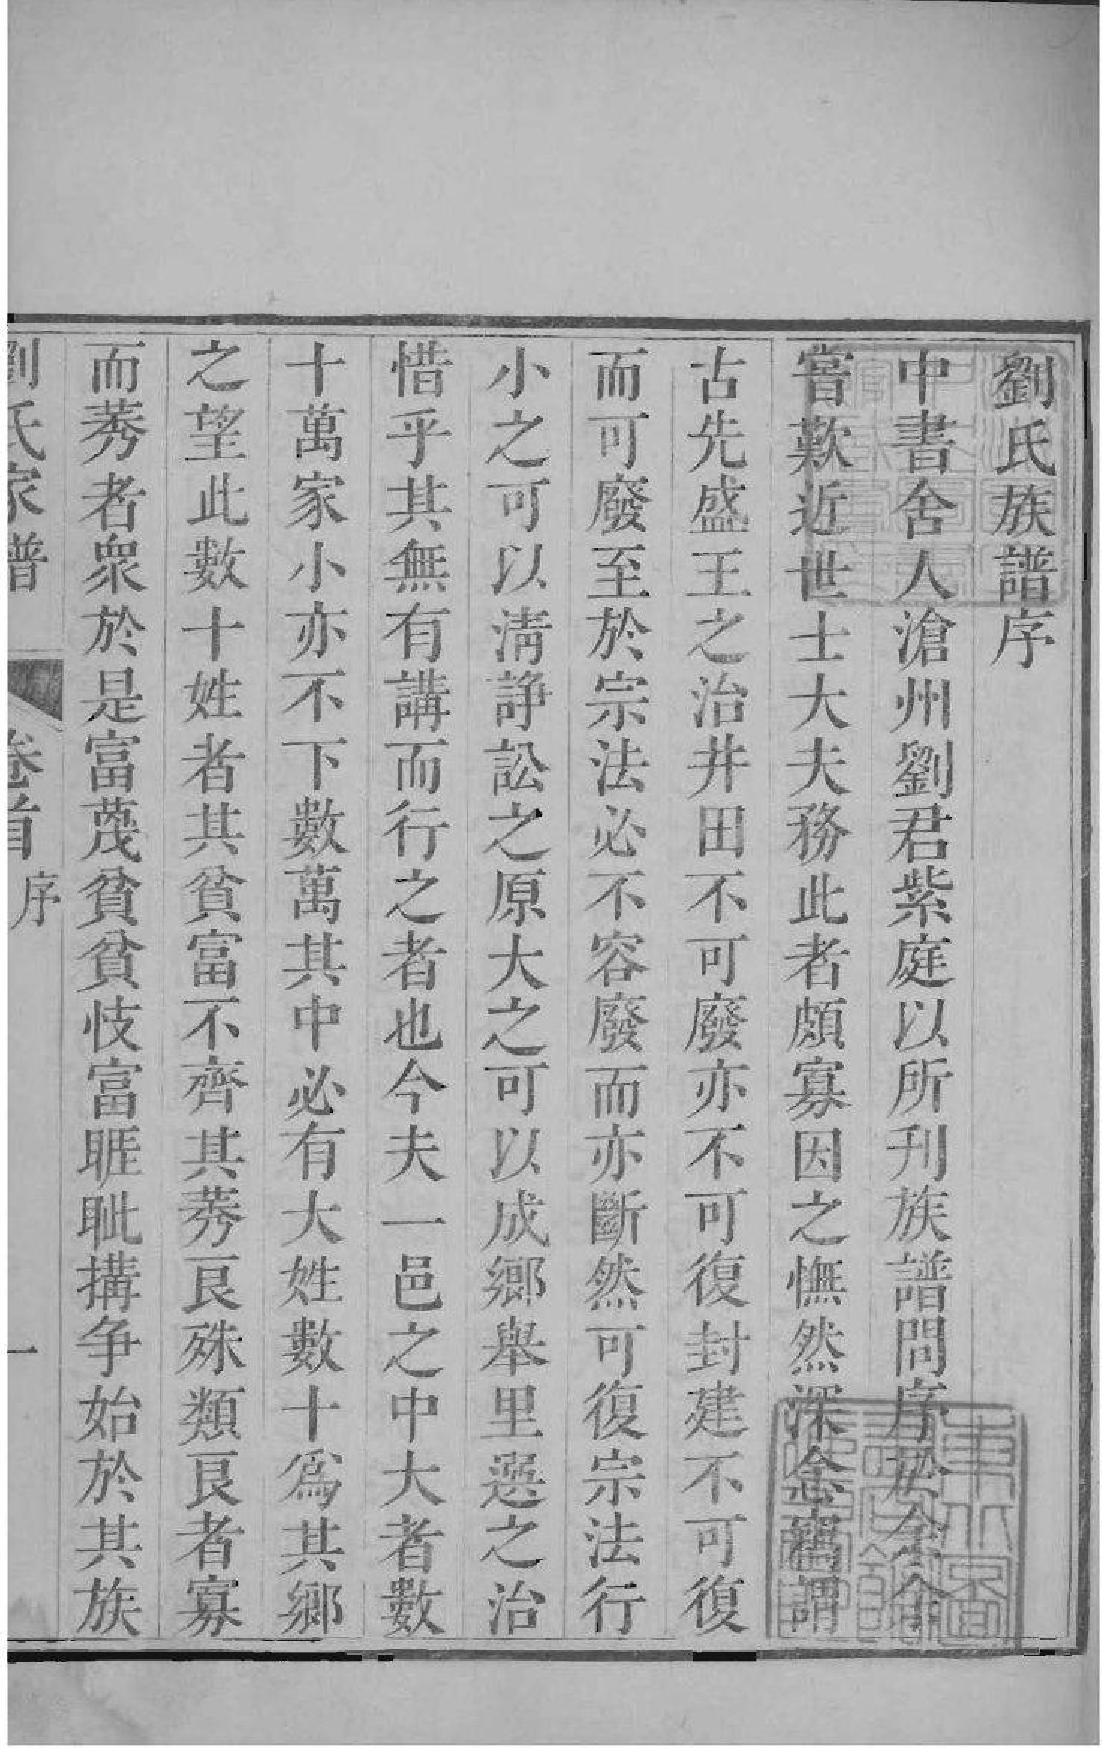 劉氏族譜序
中書舍人滄州劉君紫庭以所刊族譜問序於余余
嘗歎近世士大夫務此者頗寡因之憮然深念竊謂
古先盛王之治井田不可廢亦不可復封建不可復
而可廢至於宗法必不容廢而亦斷然可復宗法行
小之可以淸諍訟之原大之可以成鄉舉里選之治
惜乎其無有講而行之者也今夫一邑之中大者數
十萬家小亦不下數萬其中必有大姓數十爲其鄉
之望此數十姓者其貧富不齊其莠良殊類良者寡
而莠者衆於是富蔑貧貧忮富睚眦搆爭始於其族
劉氏家譜 卷首 序 一